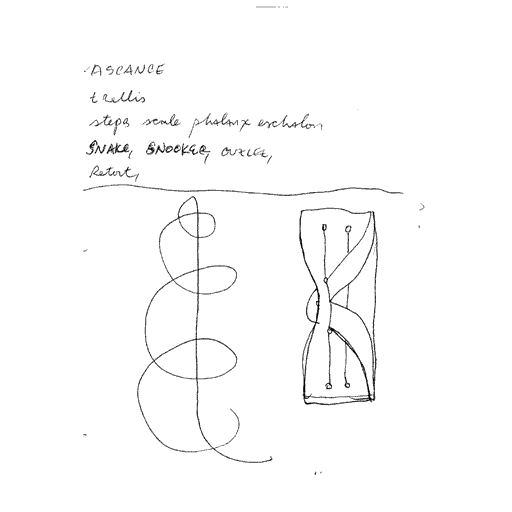 ASCANCE
trellis
steps scale phalanx eschalon
SNAKE, SNOOKER,
Retort,